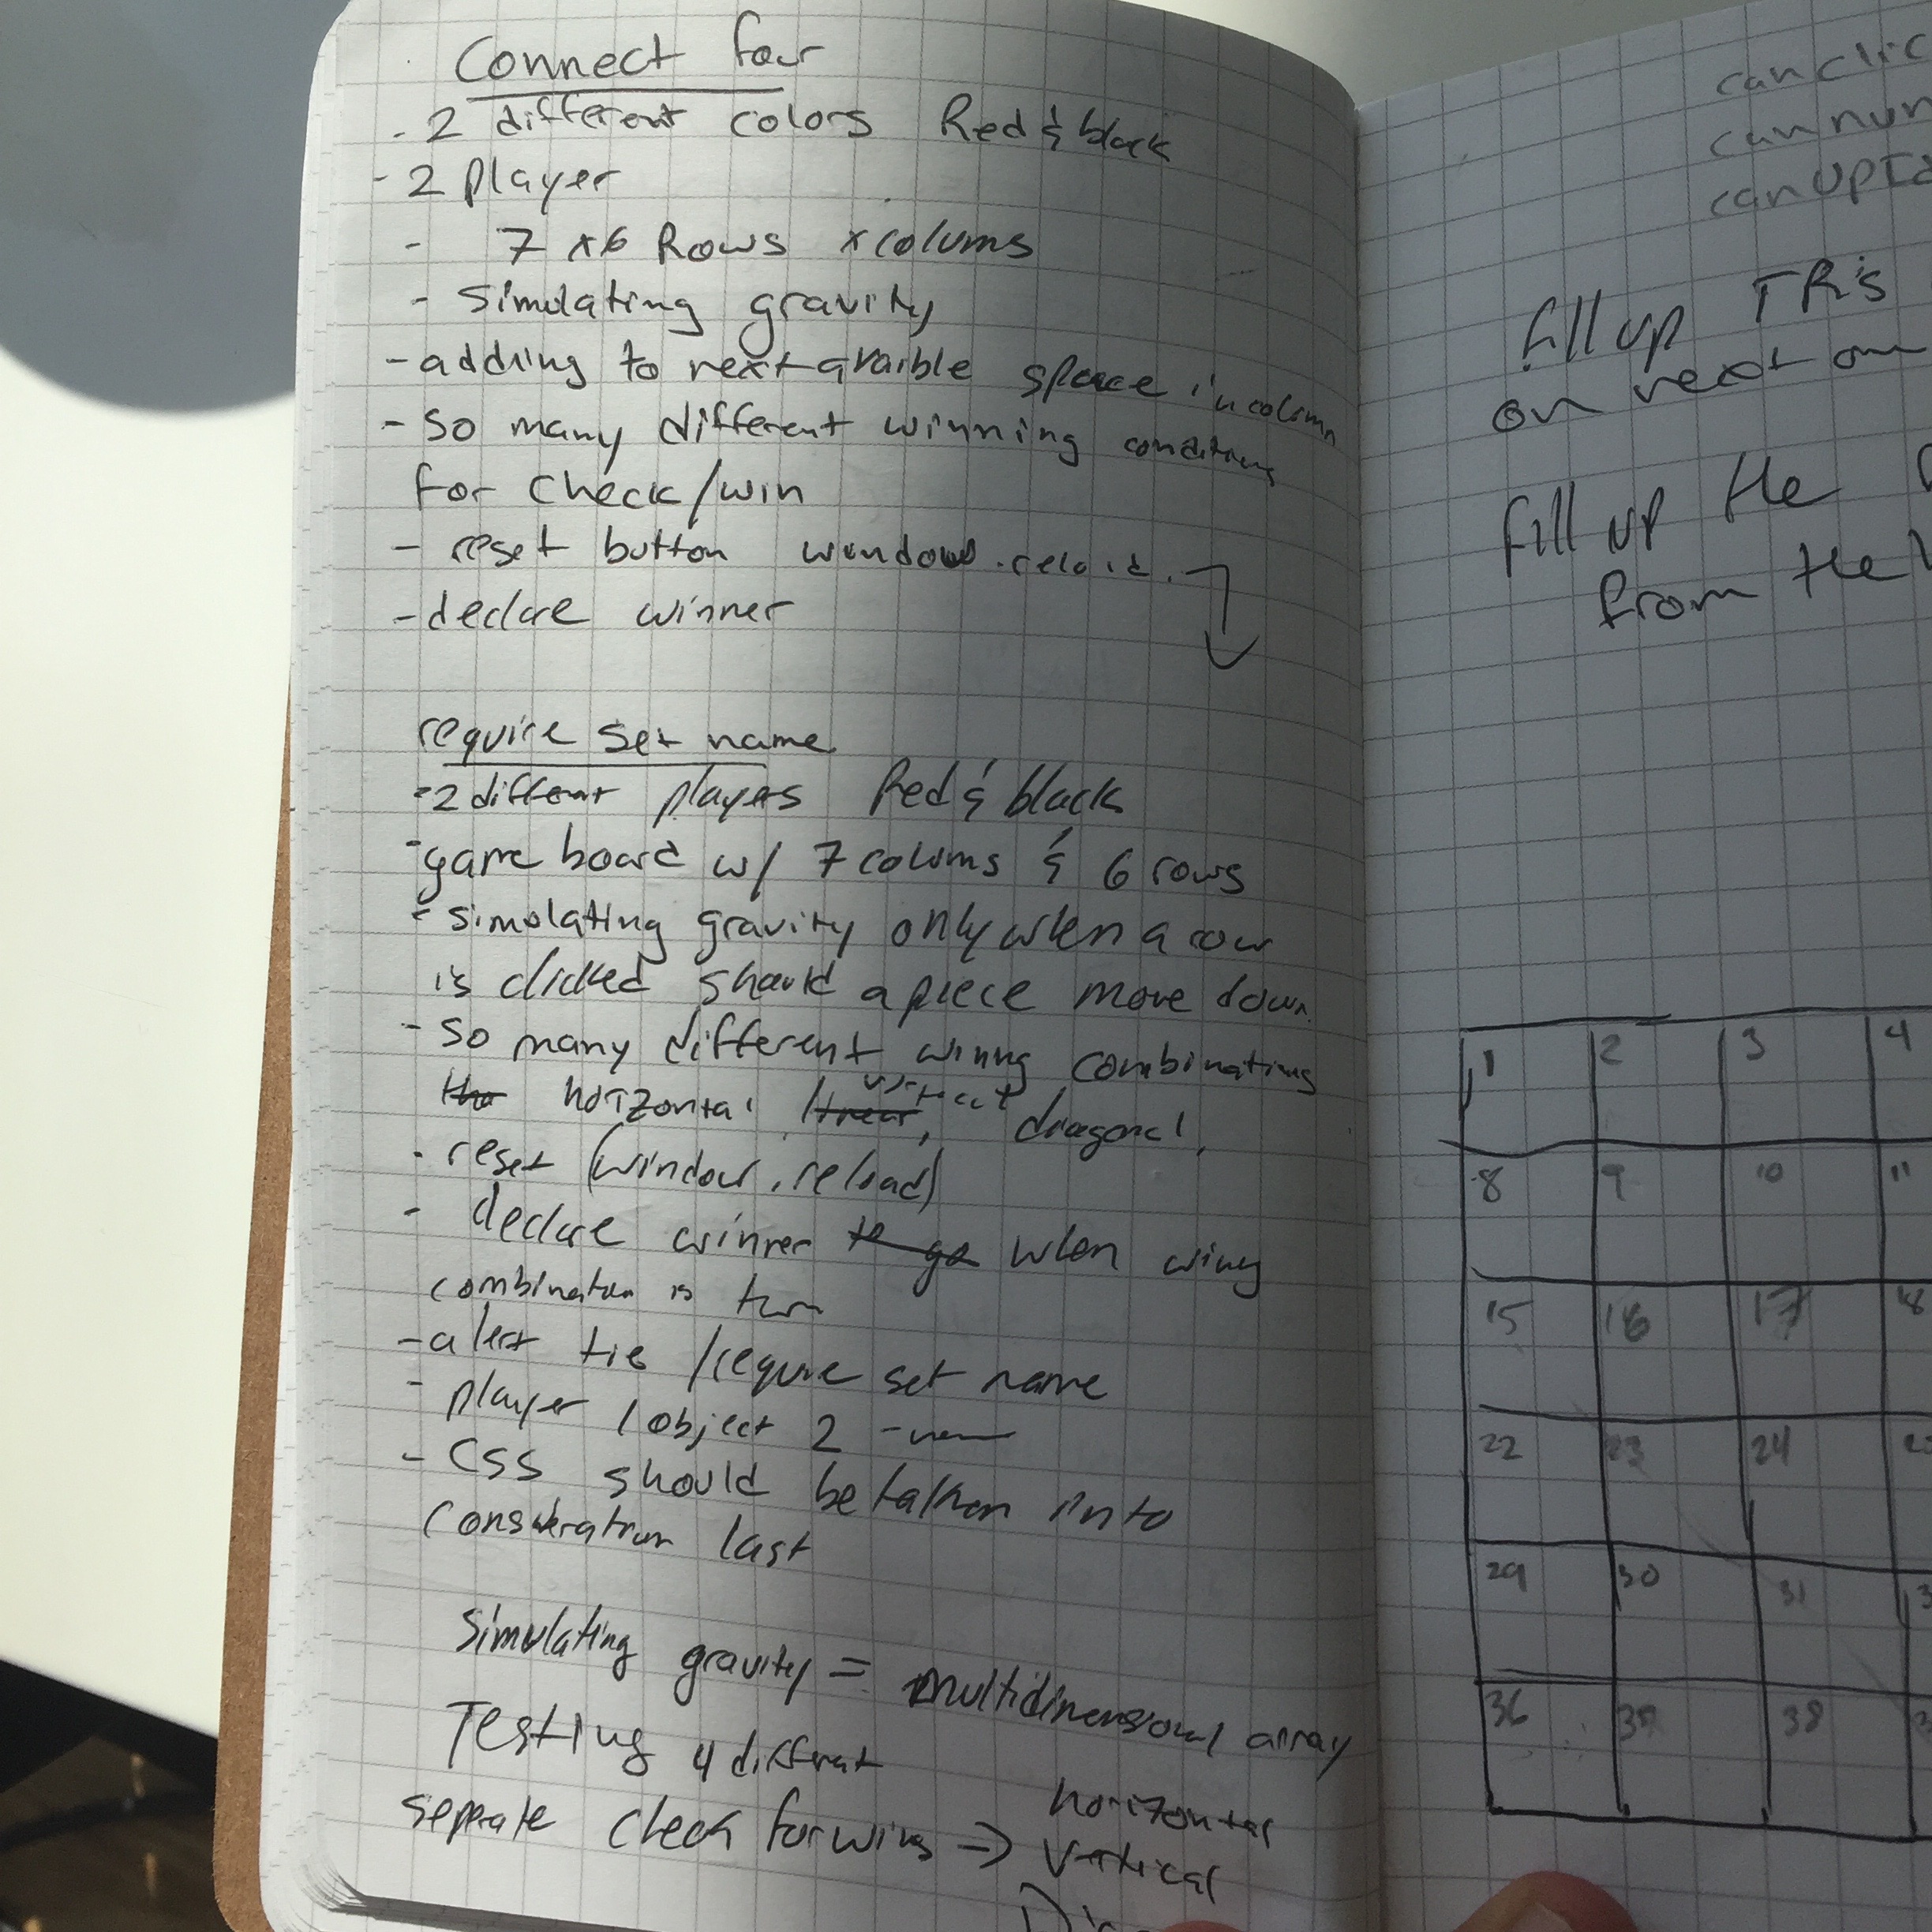 Connect four
- 2 different colors Red & black
- 2 player
- 7 x 6 Rows x colums
- simulating gravity
- adding to next avaible space in column
- so many different winning conditions
for check/win
- reset button window.reload.
- declare winner
require set name
- 2 different players Red & black
- game board w/ 7 colums & 6 rows
- simolating gravity only when a row
is clicked should a piece move down.
- so many different winng combinations
horizontal, diagonal,
- reset (window.reload)
- declare winner when
combination is
- alert tie /require set name
- player 1 object 2
- CSS should be into
consideration last
simulating gravity = multidimensional array
Testing 4 different
seperate check for wins -> horizontal
vertical
can
can
can
fill up
on next
fill up the
from the
1 2 3 4
8 9 10 11
15 16 17 18
22 23 24
29 30 31
36 37 38